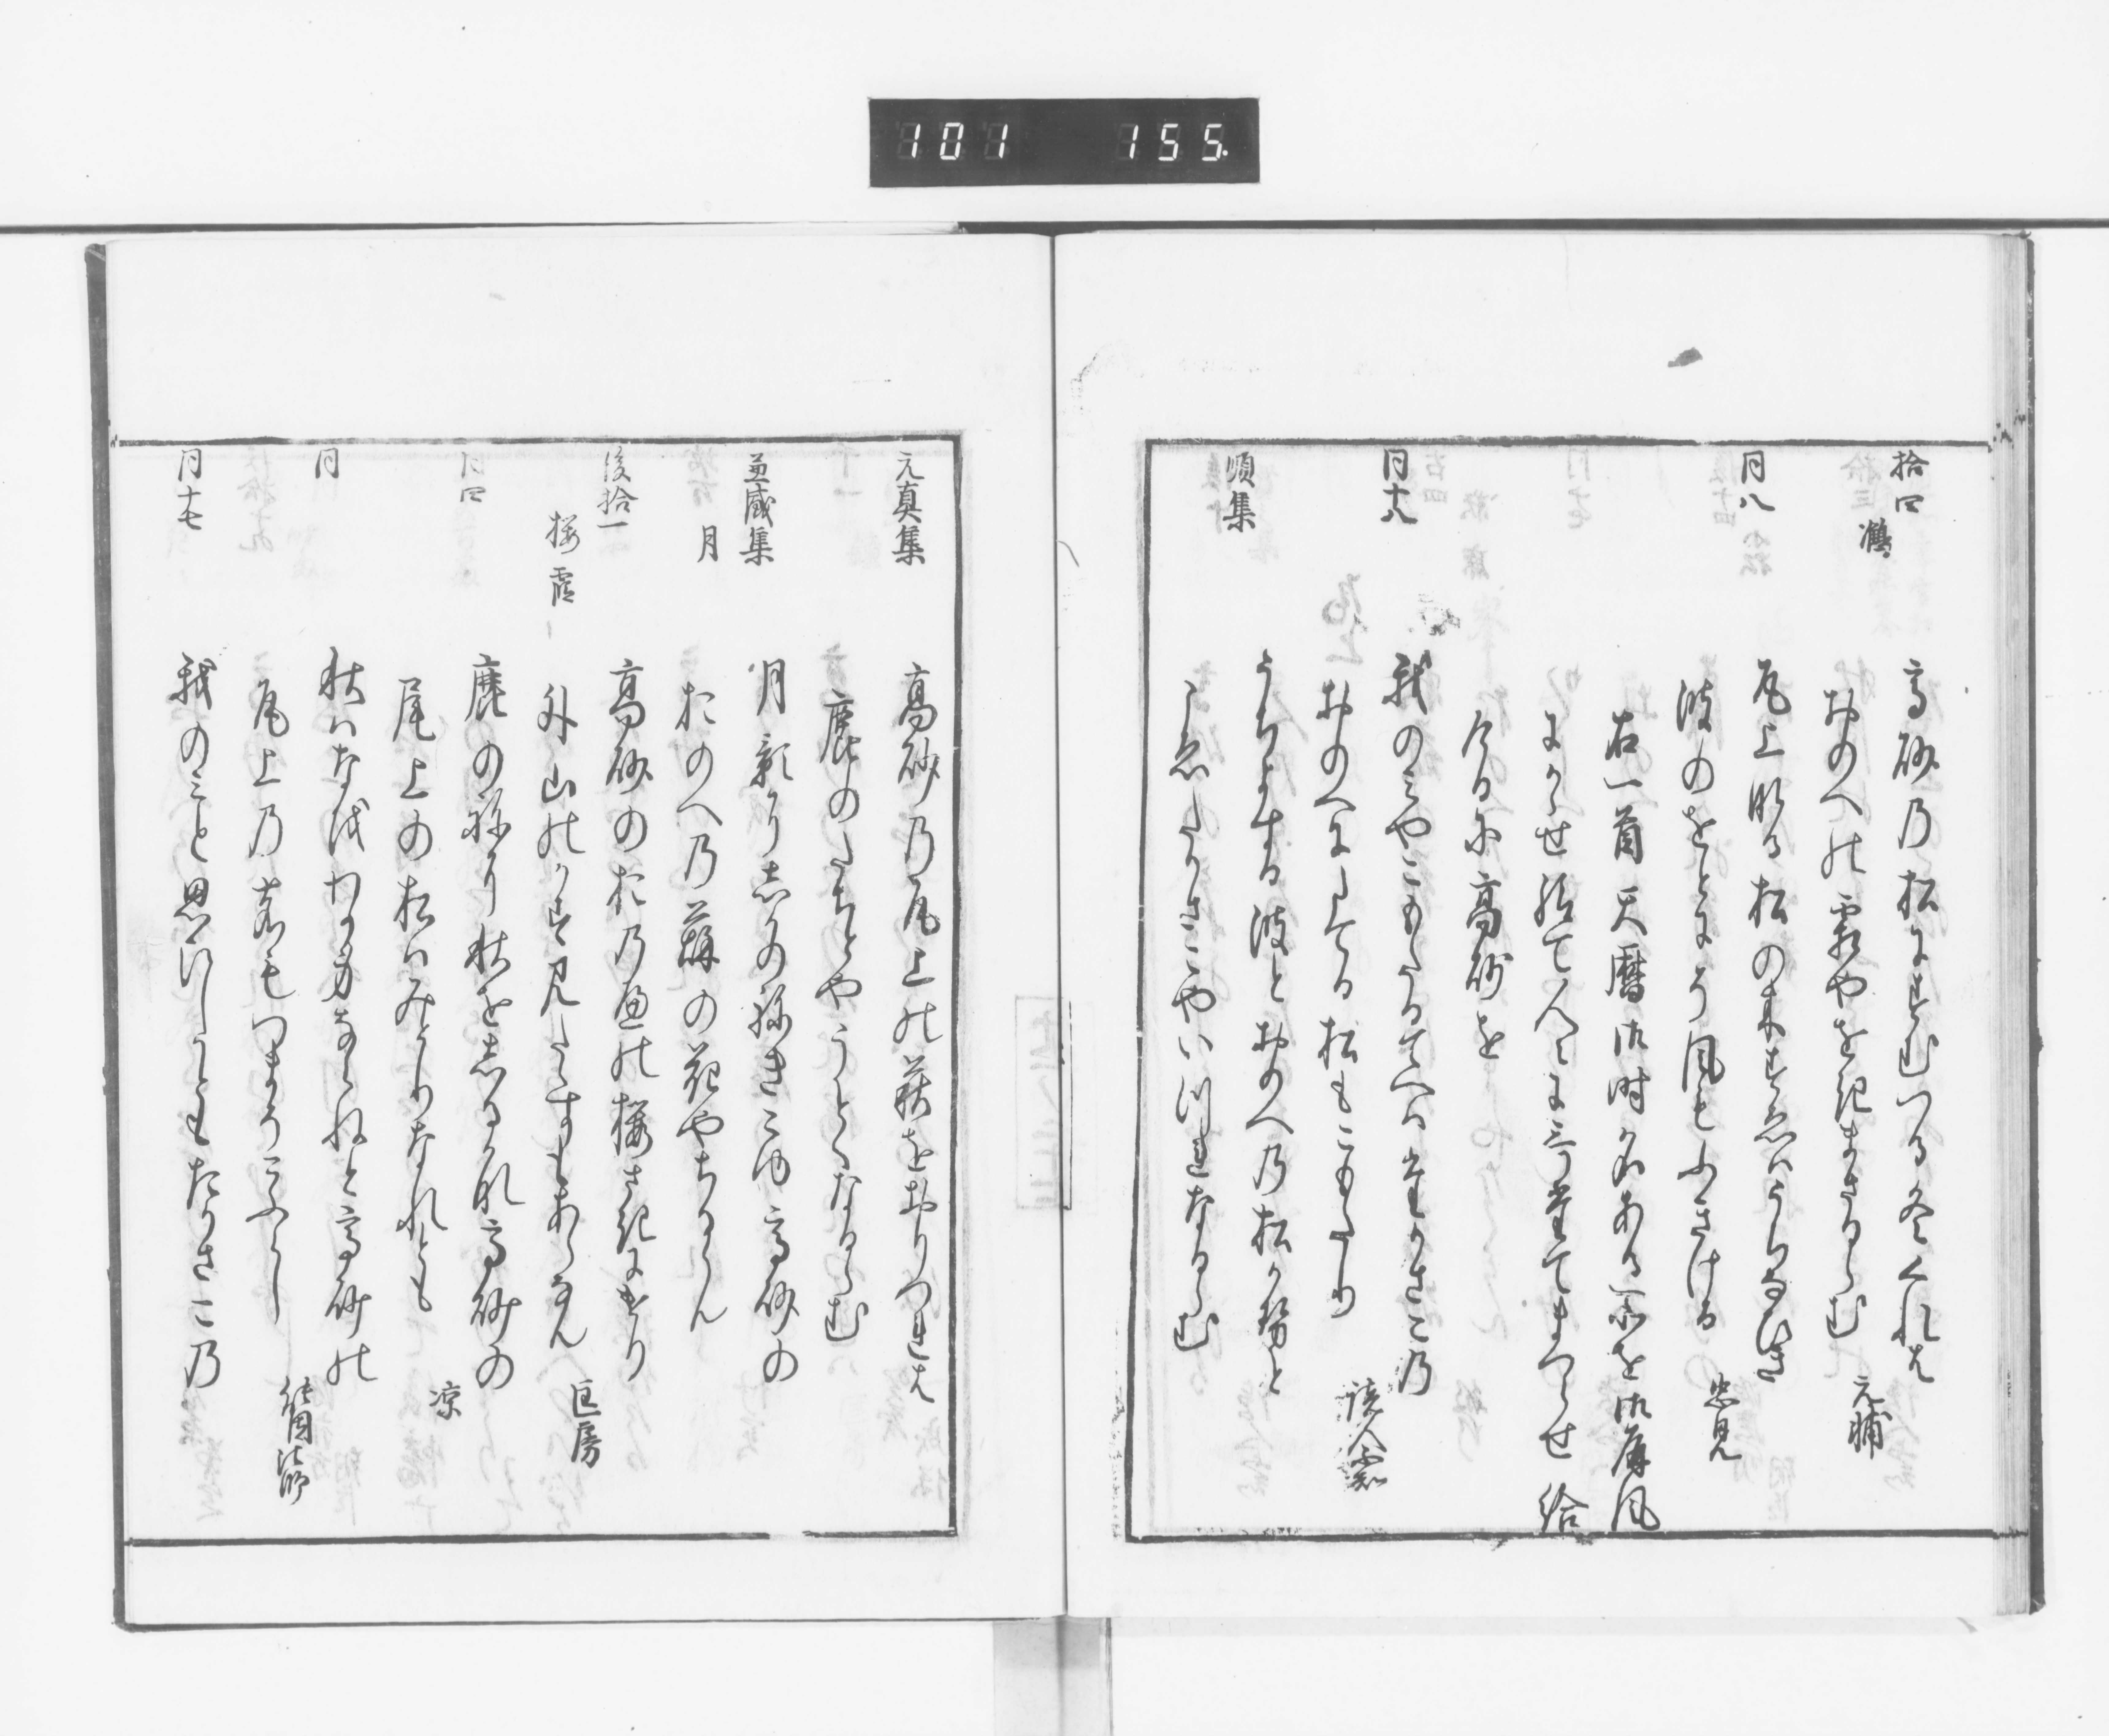 101 155.
拾四
鶴
高砂乃松にすむつる冬くれは
おのへの霜やをきまさるらむ
元輔
同八
尾上なる松の末すゑはうちなひき
波のをとにそ風もふきける
忠見
右一首天暦御時名ある所を御屏風
にかゝせ給て人々に哥奉てまつらせ給
ける尓高砂を
同十八
我のみやこもたるてへは高さこ乃
おのへにたてる松もこもたり
読人不知
順集
うちよする波とおのへ乃松かせと
こゑたかさこやいつれなるらむ
元真集
高砂乃尾上の萩をおりつれは
鹿のたちとやうとくなるらむ
兼盛集
月
月影にしかの弥きこゆ高砂の
おのへ乃萩の花やちるらん
後拾一
桜 霞
高砂のおの邊の桜さきにけり
外山のかすみたゝすもあらなん
匡房
同四
鹿の弥に秋をしるかな高砂の
尾上の松はみとりなれとも
同
秋はなをわか身ならねと高砂の
尾上乃鹿もつまそこふらし
能因法師
同十七
我のみと思ひしかともたかさこ乃